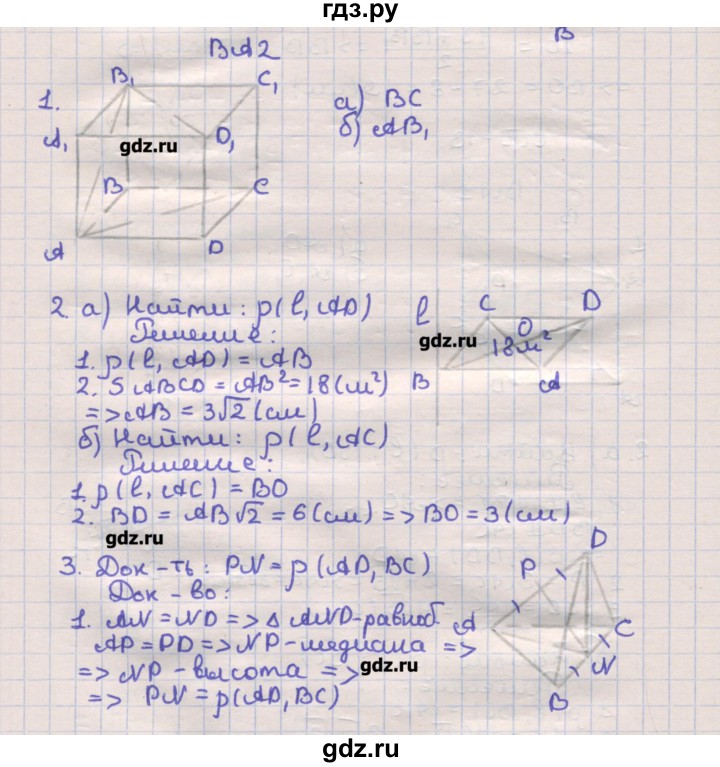 гдз.ру
B
ВА2
1.
B₁
C₁
A₁
D₁
B
C
A
D
gdz.ru
а) BC
б) AB₁
2. а) Найти: p(l, AD)
Решение:
1. p(l, AD) = AB
2. S ABCD = AB² = 18(м²)
=> AB = 3√2 (см)
б) Найти: p(l, AC)
Решение:
1. p(l, AC) = BO
2. BD = AB√2 = 6(см) => BO = 3(см)
l
C
D
O
18м²
B
A
gdz.ru
gdz.ru
3. Док-ть: PN = p(AD, BC)
Док-во:
1. AN = ND => △ AND-равноб.
AP = PD => NP-медиана =>
=> NP-высота =>
=> PN = p(AD, BC)
D
P
A
C
N
B
gdz.ru
gdz.ru